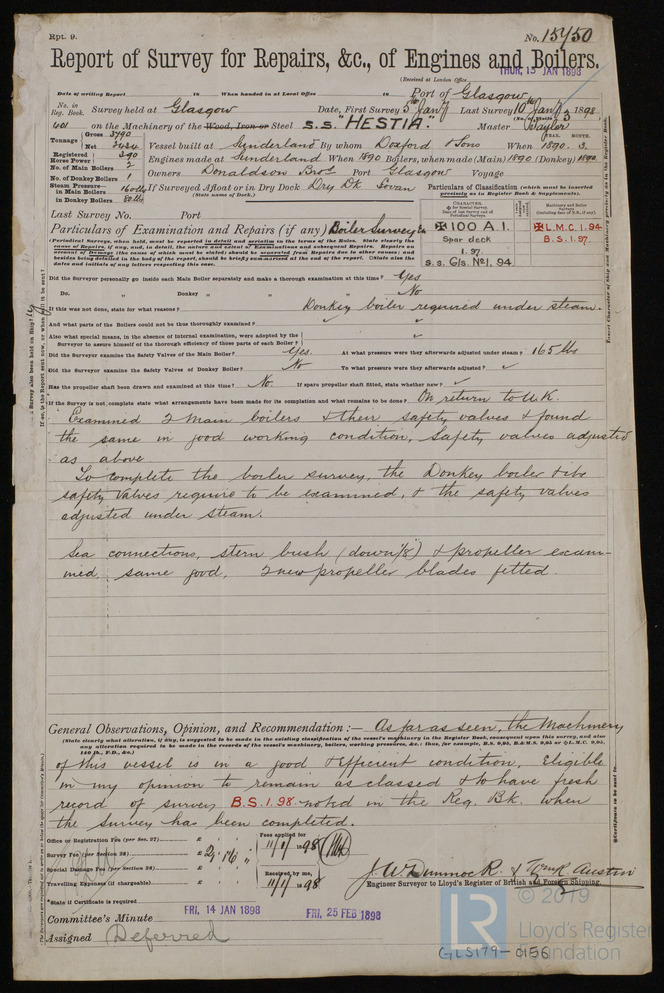 Rpt. 9.
No. 15450
Report of Survey for Repairs, &c., of Engines and Boilers.
(Received at London Office
THUR, 13 JAN 1898
Date of writing Report 18 When handed in at Local Office 18 Port of Glasgow
No. in Reg. Book. Survey held at Glasgow Date, First Survey 5th Jany Last Survey 10th Jany 1898
(No. of Visits 3
401 on the Machinery of the Wood, Iron or Steel S.S. "HESTIA." Master Taylor
YEAR. MONTH.
Tonnage Gross 3790 Net 2434 Vessel built at Sunderland By whom Doxford & Sons When 1890. 3.
Registered Horse Power 390 Engines made at Sunderland When 1890 Boilers, when made (Main) 1890 (Donkey) 1890
No. of Main Boilers 2 Owners Donaldson Bros Port Glasgow Voyage
No. of Donkey Boilers 1
Steam Pressure— in Main Boilers 160 lbs If Surveyed Afloat or in Dry Dock Dry Dk Govan
in Donkey Boilers 80 lbs (State name of Dock.)
Particulars of Classification (which must be inserted precisely as in Register Book & Supplements).
Last Survey No. Port
CHARACTER.
for Special Survey.
Date of last Survey and of Periodical Surveys.
Machinery and Boiler Surveys (including date of N.B., if any).
✠ 100 A.1.
Spar deck
1.97.
S.S. Gls. No1, 94.
✠ L.M.C. 1.94
B.S. 1.97.
Particulars of Examination and Repairs (if any) Boiler Survey &c
(Periodical Surveys, when held, must be reported in detail and seriatim in the terms of the Rules. State clearly the
cause of Repairs, if any, and, in detail, the nature and extent of Examinations and subsequent Repairs. Repairs on
account of Damage (the cause of which must be stated) should be separated from Repairs due to other causes; and
besides being detailed in the body of the report, should be briefly summarised at the end of the report. State also the
dates and initials of any letters respecting this case.
Did the Surveyor personally go inside each Main Boiler separately and make a thorough examination at this time? Yes
Do. „ Donkey „ „ „ „ No
If this was not done, state for what reasons? Donkey boiler required under steam.
And what parts of the Boilers could not be thus thoroughly examined? ✓
Also what special means, in the absence of internal examination, were adopted by the
Surveyor to assure himself of the thorough efficiency of those parts of each Boiler? ✓
Did the Surveyor examine the Safety Valves of the Main Boiler? Yes. At what pressure were they afterwards adjusted under steam? 165 lbs
Did the Surveyor examine the Safety Valves of Donkey Boiler? No To what pressure were they afterwards adjusted? ✓
Has the propeller shaft been drawn and examined at this time? No. If spare propeller shaft fitted, state whether new? ✓
If the Survey is not complete state what arrangements have been made for its completion and what remains to be done? On return to U.K.
Examined 2 Main boilers & their safety valves & found
the same in good working condition, Safety valves adjusted
as above
To complete the boiler survey, the Donkey boiler & its
safety valves require to be examined, & the safety valves
adjusted under steam.
Sea connections, stern bush (down 1/8") & propeller exam-
ined, same good, 2 new propeller blades fitted.
General Observations, Opinion, and Recommendation:— As far as seen, the Machinery
(State clearly what alteration, if any, is suggested to be made in the existing classification of the vessel's machinery in the Register Book, consequent upon this survey, and also
any alteration required to be made in the records of the vessel's machinery, boilers, working pressures, &c.: thus, for example, B.S. 9,95, B.&M.S. 9,95 or ✠L.M.C. 9,95,
150 lb., F.D., &c.)
of this vessel is in a good & efficient condition. Eligible
in my opinion to remain as classed & to have fresh
record of survey B.S.1.98 noted in the Reg. Bk. when
the survey has been completed.
Office or Registration Fee (per Sec. 27) £ Fees applied for
Survey Fee (per Section 28) £ 2.16 „ 11/1/1898
Special Damage Fee (per Section 28) £
Travelling Expenses (if chargeable) £ Received by me, 11/1/1898
J. W. Dimmock R. & Frank Austin
Engineer Surveyor to Lloyd's Register of British and Foreign Shipping.
*State if Certificate is required
Committee's Minute FRI, 14 JAN 1898 FRI, 25 FEB 1898
Assigned Deferred
© 2019
LR Lloyd's Register
Foundation
GLS179-0156